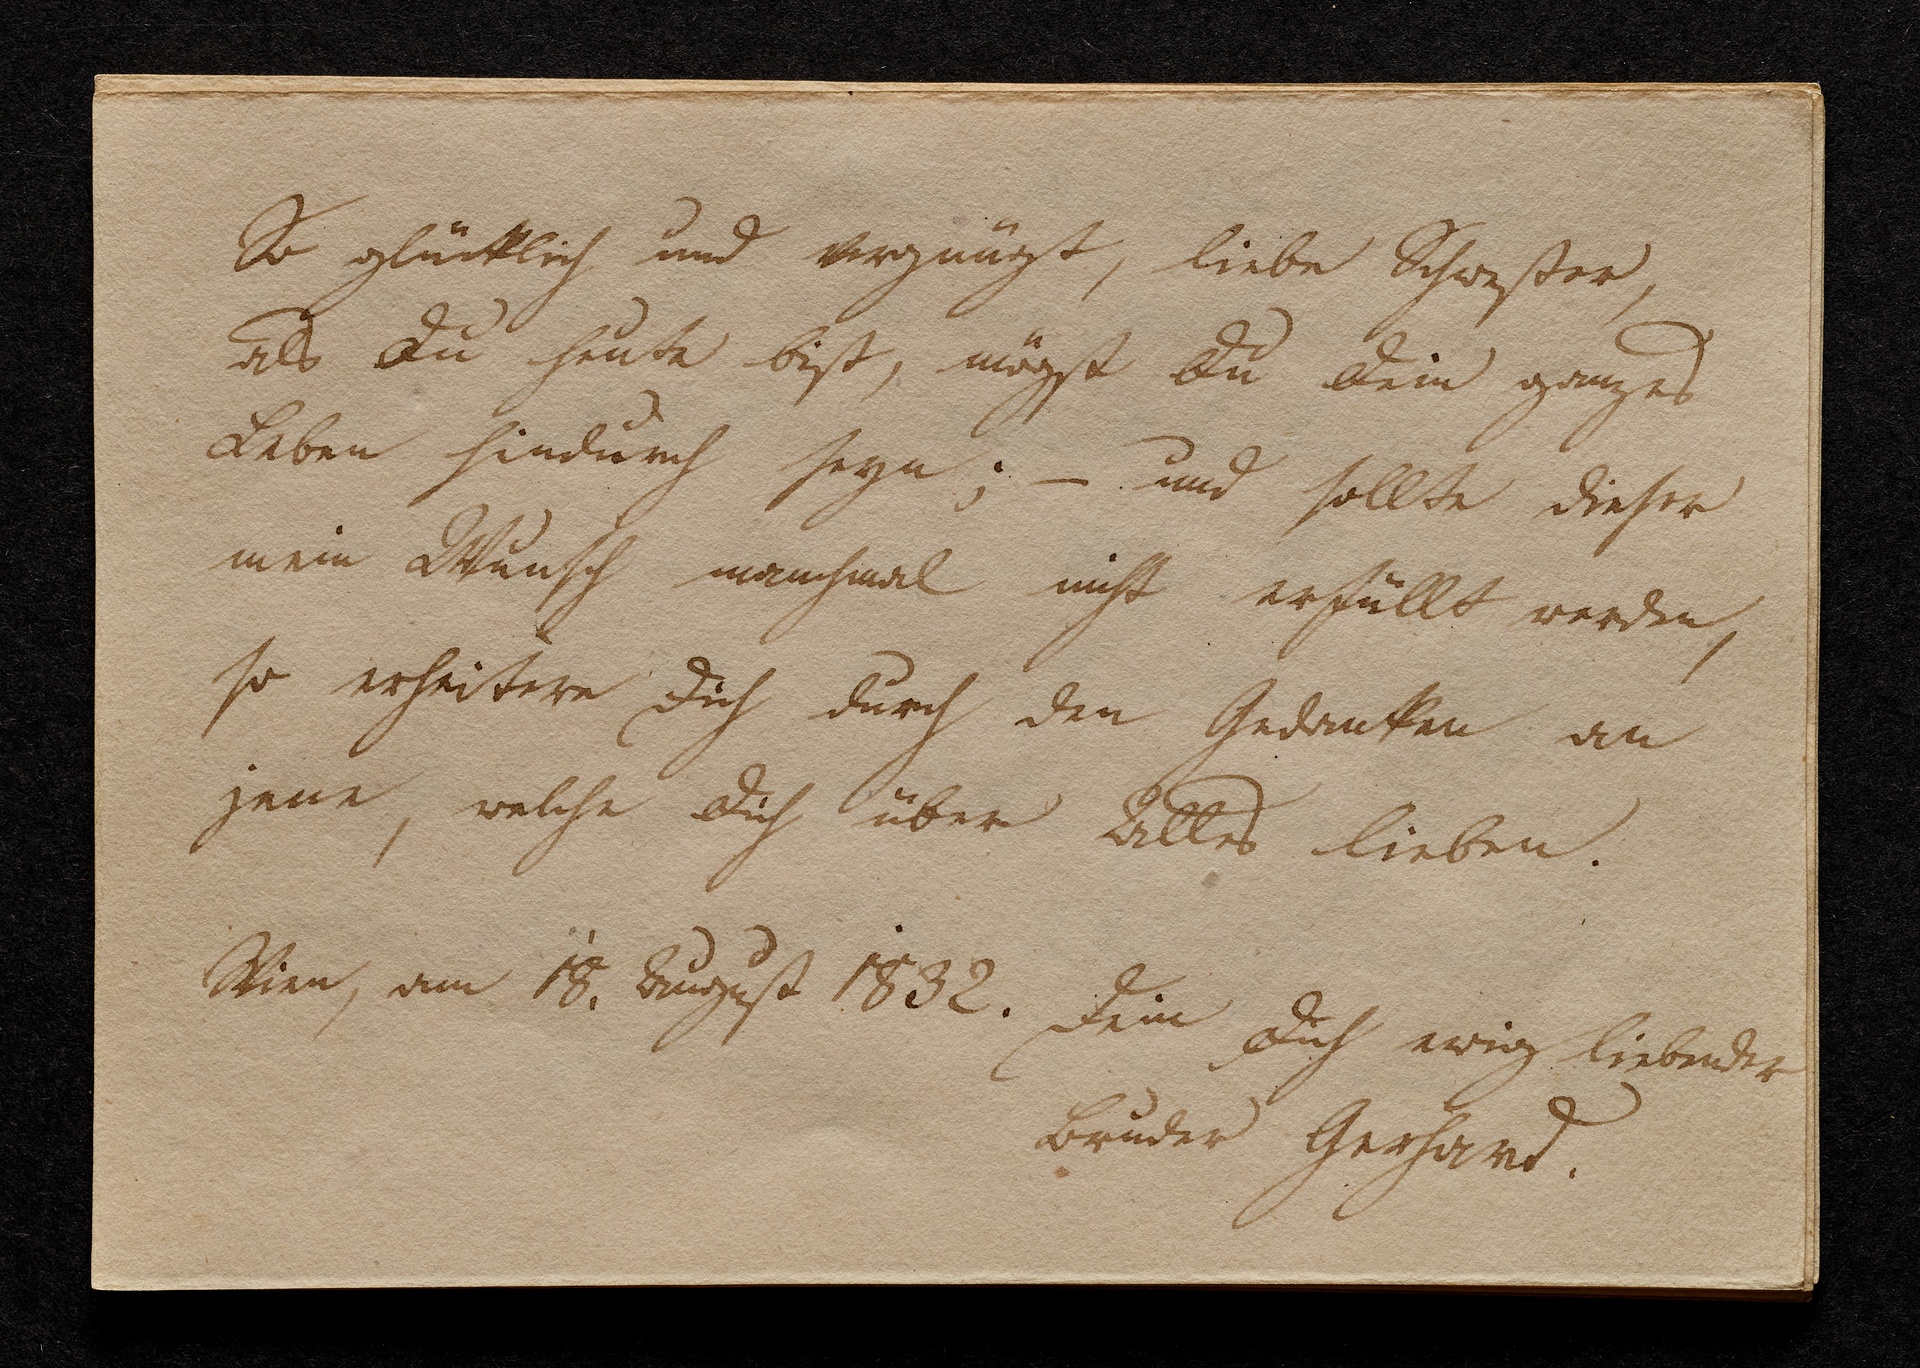 So glücklich und vergnügt, liebe Schwester,
als Du heute bist, mögst Du Dein ganzes
Leben hindurch seyn; – und sollte dieser
mein Wunsch manchmal nicht erfüllt werden,
so erheitere Dich durch den Gedanken an
jene, welche Dich über Alles lieben.
Wien, am 18. August 1832.
Dein Dich ewig liebender
Bruder Gerhard.